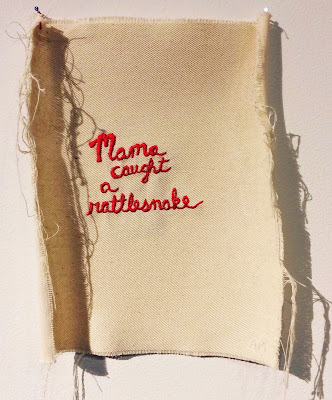 Mama
caught
a
rattlesnake